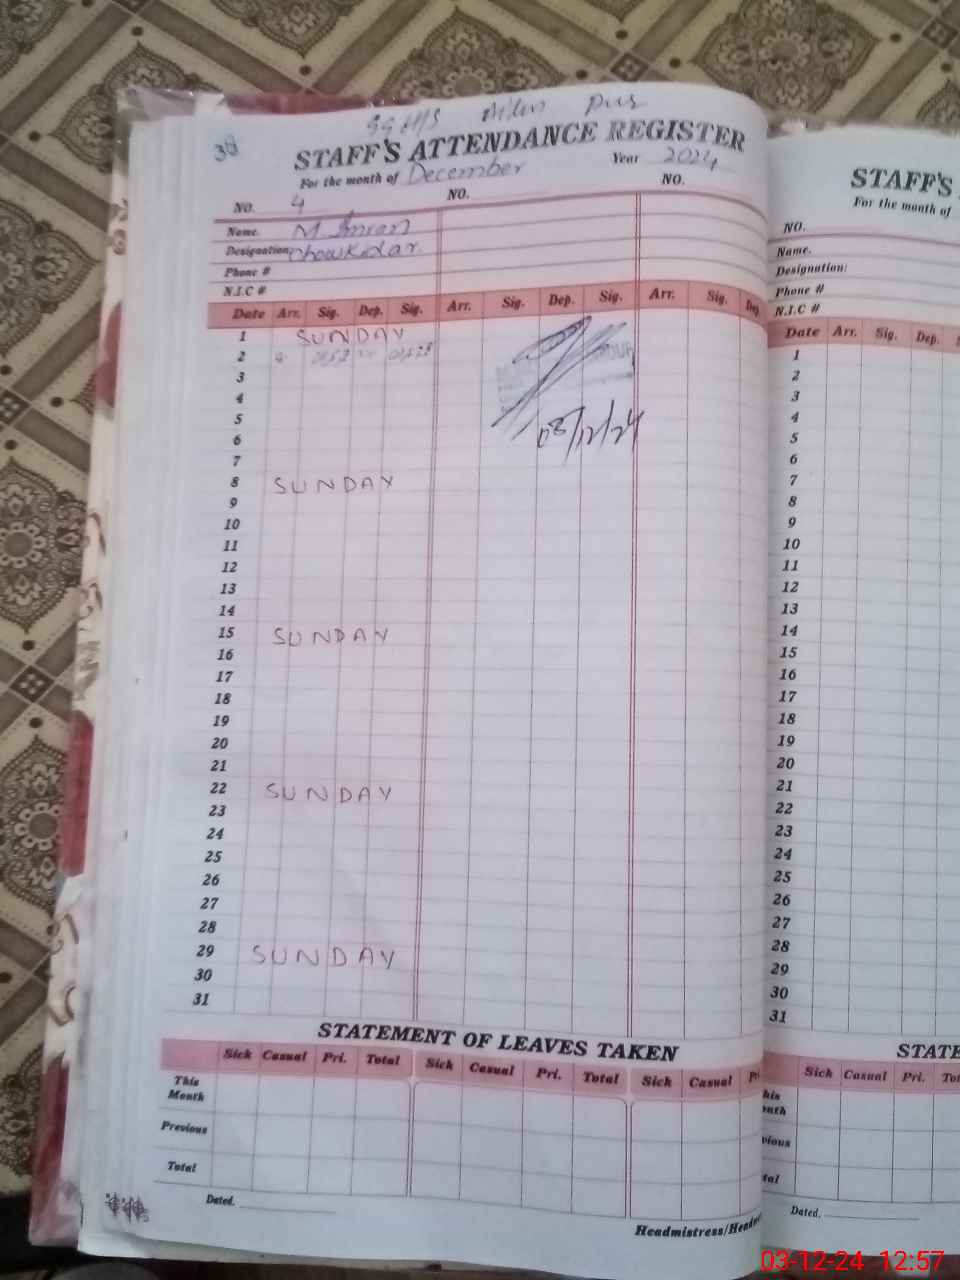 38
STAFF'S ATTENDANCE REGISTER
For the month of December Year 2024
NO. 4 NO. NO.
Name. M. Imran
Designation: Chowkidar
Phone #
N.I.C #
Date Arr. Sig. Dep. Sig. Arr. Sig. Dep. Sig. Arr. Sig. Dep.
1 SUNDAY
2
3
4
5
6
7
8 SUNDAY
9
10
11
12
13
14
15 SUNDAY
16
17
18
19
20
21
22 SUNDAY
23
24
25
26
27
28
29 SUNDAY
30
31
03/12/24
STATEMENT OF LEAVES TAKEN
Sick Casual Pri. Total Sick Casual Pri. Total Sick Casual Pri
This Month
Previous
Total
Dated.
Headmistress/Head
STAFF'S
For the month of
NO.
Name.
Designation:
Phone #
N.I.C #
Date Arr. Sig. Dep.
1
2
3
4
5
6
7
8
9
10
11
12
13
14
15
16
17
18
19
20
21
22
23
24
25
26
27
28
29
30
31
STATE
Sick Casual Pri. To
his
onth
vious
tal
Dated.
03-12-24 12:57